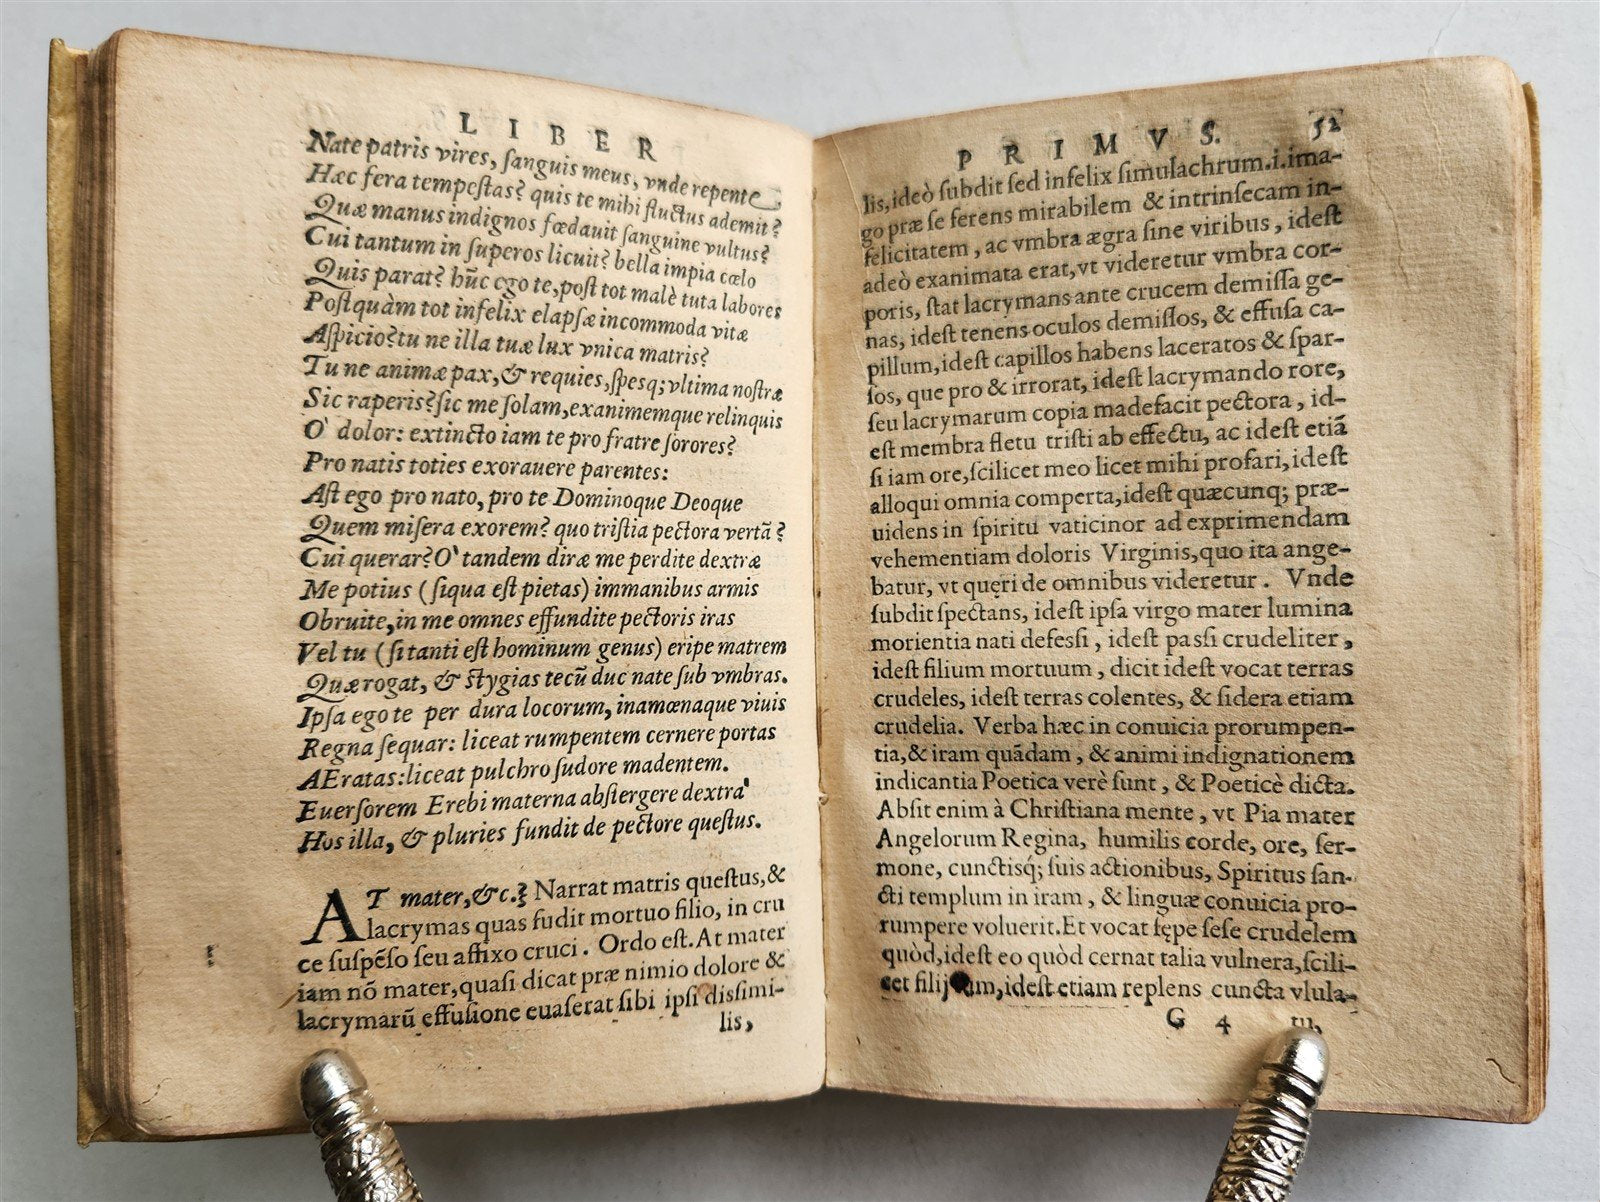 LIBER
Nate patris vires, ſanguis meus, vnde repente
Hæc fera tempeſtas? quis te mihi fluctus ademit?
Quæ manus indignos fœdauit ſanguine vultus?
Cui tantum in ſuperos licuit? bella impia cœlo
Quis parat? hũc ego te, poſt tot malè tuta labores
Poſtquàm tot infelix elapſæ incommoda vitæ
Aſpicio? tu ne illa tuæ lux vnica matris?
Tu ne animæ pax, & requies, ſpesq; vltima noſtræ
Sic raperis? ſic me ſolam, exanimemque relinquis
O' dolor: extincto iam te pro fratre ſorores?
Pro natis toties exorauere parentes:
Aſt ego pro nato, pro te Dominoque Deoque
Quem miſera exorem? quo triſtia pectora vertã?
Cui querar? O' tandem diræ me perdite dextræ
Me potius (ſiqua eſt pietas) immanibus armis
Obruite, in me omnes effundite pectoris iras
Vel tu (ſi tanti eſt hominum genus) eripe matrem
Quæ rogat, & ſtygias tecũ duc nate ſub vmbras.
Ipſa ego te per dura locorum, inamœnaque viuis
Regna ſequar: liceat rumpentem cernere portas
AEratas: liceat pulchro ſudore madentem.
Euerſorem Erebi materna abſtergere dextra'
Hos illa, & pluries fundit de pectore queſtus.
AT mater, &c.] Narrat matris queſtus, &
lacrymas quas fudit mortuo filio, in cru
ce ſuſpẽſo ſeu affixo cruci. Ordo eſt. At mater
iam nõ mater, quaſi dicat præ nimio dolore &
lacrymarũ effuſione euaſerat ſibi ipſi diſſimi-
lis,
PRIMVS. 52
lis, ideò ſubdit ſed infelix ſimulachrum .i. ima-
go præ ſe ferens mirabilem & intrinſecam in-
felicitatem, ac vmbra ægra ſine viribus, ideſt
adeò exanimata erat, vt videretur vmbra cor-
poris, ſtat lacrymans ante crucem demiſſa ge-
nas, ideſt tenens oculos demiſſos, & effuſa ca-
pillum, ideſt capillos habens laceratos & ſpar-
ſos, que pro & irrorat, ideſt lacrymando rore,
ſeu lacrymarum copia madefacit pectora, id-
eſt membra fletu triſti ab effectu, ac ideſt etiã
ſi iam ore, ſcilicet meo licet mihi profari, ideſt
alloqui omnia comperta, ideſt quæcunq; præ-
uidens in ſpiritu vaticinor ad exprimendam
vehementiam doloris Virginis, quo ita ange-
batur, vt quęri de omnibus videretur. Vnde
ſubdit ſpectans, ideſt ipſa virgo mater lumina
morientia nati defeſſi, ideſt paſſi crudeliter,
ideſt filium mortuum, dicit ideſt vocat terras
crudeles, ideſt terras colentes, & ſidera etiam
crudelia. Verba hæc in conuicia prorumpen-
tia, & iram quãdam, & animi indignationem
indicantia Poetica verè ſunt, & Poeticè dicta.
Abſit enim à Chriſtiana mente, vt Pia mater
Angelorum Regina, humilis corde, ore, ſer-
mone, cunctisq́; ſuis actionibus, Spiritus ſan-
cti templum in iram, & linguæ conuicia pro-
rumpere voluerit. Et vocat ſępe ſeſe crudelem
quòd, ideſt eo quòd cernat talia vulnera, ſcili-
cet filij, ideſt etiam replens cuncta vlula-
G 4 tu,